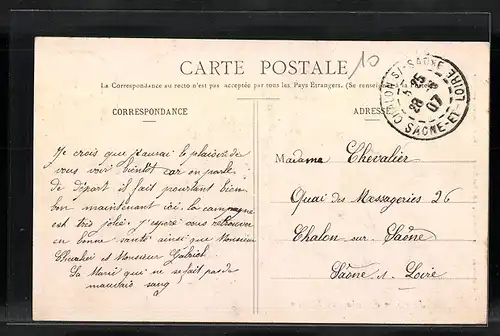 10
CARTE POSTALE
La Correspondance au recto n'est pas acceptée par tous les Pays Etrangers. (Se renseigner à la Poste)
CORRESPONDANCE
ADRESSE
CHALON S-SAONE
25
28
07
SAONE-ET-LOIRE
Je crois que j'aurai le plaisir de
vous voir bientôt car on parle
de départ il fait pourtant bien
bon maintenant ici la campagne
est très jolie j'espère vous retrouver
en bonne santé ainsi que Monsieur
Chevalier et Monsieur Gabriel
La Marie qui ne se fait pas de
mauvais sang
Madame Chevalier
Quai des Messageries 26
Chalon sur Saône
Saône & Loire